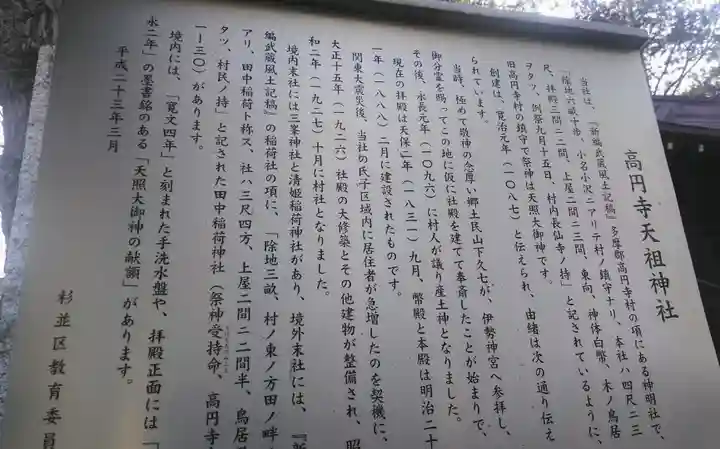 高円寺天祖神社
当社は、『新編武蔵風土記稿』多摩郡高円寺村の項にある神明社で、
「除地六畝十歩、小名小沢ニアリテ村ノ鎮守ナリ、本社ハ四尺ニ三
尺、拝殿三間ニ二間、上屋二間ニ三間、東向、神体白幣、木ノ鳥居
ヲタツ、例祭九月十五日、村内長仙寺ノ持」と記されているように、
旧高円寺村の鎮守で祭神は天照大御神です。
創建は、寛治元年（一〇八七）と伝えられ、由緒は次の通り伝え
られています。
当時、極めて敬神の念厚い郷土民山下久七が、伊勢神宮へ参拝し、
御分霊を賜ってこの地に仮に社殿を建てて奉斎したことが始まりで、
その後、永長元年（一〇九六）に村人が議り産土神となりました。
現在の拝殿は天保二年（一八三一）九月、幣殿と本殿は明治二十
一年（一八八八）二月に建設されたものです。
関東大震災後、当社の氏子区域内に居住者が急増したのを契機に、
大正十五年（一九二六）社殿の大修築とその他建物が整備され、昭
和二年（一九二七）十月に村社となりました。
境内末社には三峯神社と清姫稲荷神社があり、境外末社には、『新
編武蔵風土記稿』の稲荷社の項に、「除地三畝、村ノ東ノ方田ノ畔
アリ、田中稲荷ト称ス、社ハ三尺四方、上屋二間ニ二間半、鳥居
タツ、村民ノ持」と記された田中稲荷神社（祭神受持命、高円寺
一ー三〇）があります。
境内には、「寛文四年」と刻まれた手洗水盤や、拝殿正面には「
永二年」の墨書銘のある「天照大御神の献額」があります。
平成二十三年三月
杉並区教育委員